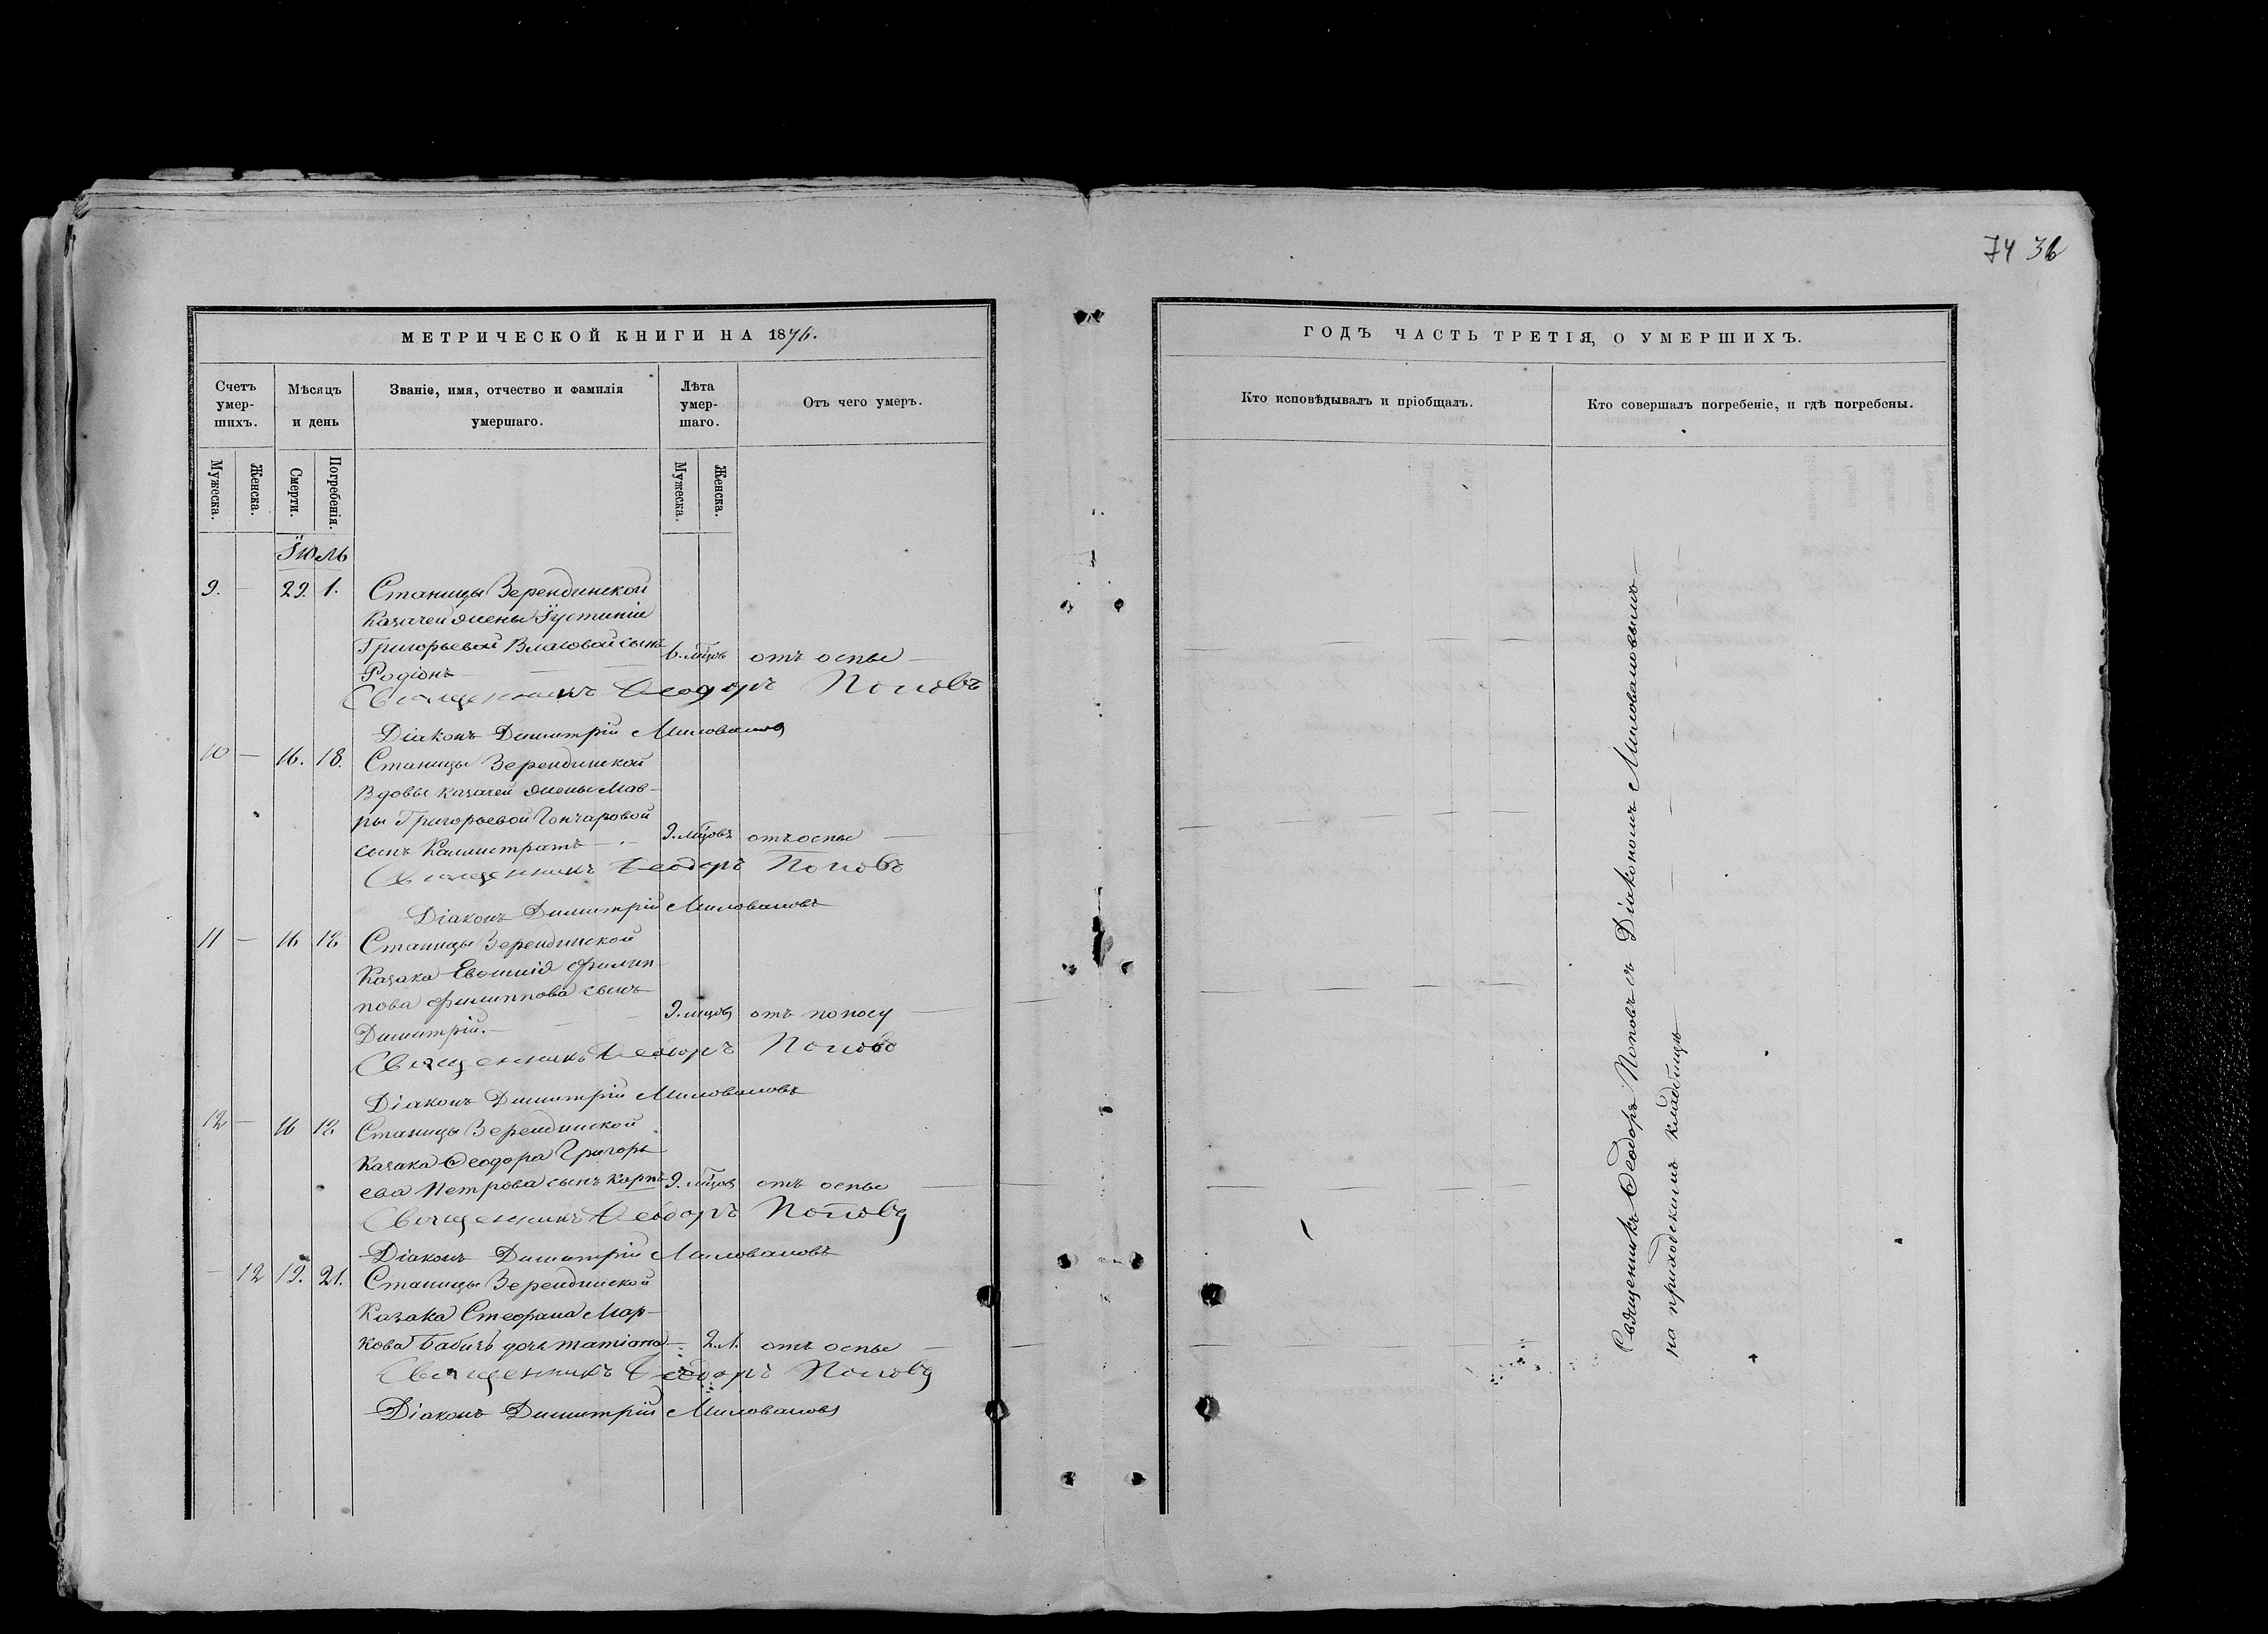 74 36
МЕТРИЧЕСКОЙ КНИГИ НА 1876.
Счетъ умер-шихъ.
Мѣсяцъ и день
Званіе, имя, отчество и фамилія умершаго.
Лѣта умер-шаго.
Отъ чего умеръ.
Мужеска.
Женска.
Смерти.
Погребенія.
Мужеска.
Женска.
Іюль
9. — 29. 1. Станицы Верендинской
Казачей жены Іустиніи
Григорьевой Власовой сынъ
Родіонъ — 6. мцовъ отъ оспы —
Священникъ Ѳеодоръ Поповъ
Діаконъ Димитрій Миловановъ
10 — 16. 18. Станицы Зерендинской
Вдовы казачей жены Мав-
ры Григорьевой Гончаровой
сынъ Каллистратъ — 9. мцовъ отъ оспы —
Священникъ Ѳеодоръ Поповъ
Діаконъ Димитрій Миловановъ
11 — 16 18 Станицы Зерендинской
Казака Филип-
пова Филиппова сынъ
Димитрій. — 9. мцовъ отъ поносу —
Священникъ Ѳеодоръ Поповъ
Діаконъ Димитрій Миловановъ
12 — 16 18 Станицы Зерендинской
Казака Ѳеодора Григорь
ева Петрова сынъ Карпъ 9. мцовъ отъ оспы —
Священникъ Ѳеодоръ Поповъ
Діаконъ Димитрій Миловановъ
— 12 19. 21. Станицы Зерендинской
Казака Стефана Мар-
кова Бабичъ дочь Татіана — 2. л. отъ оспы —
Священникъ Ѳеодоръ Поповъ
Діаконъ Димитрій Миловановъ
ГОДЪ ЧАСТЬ ТРЕТІЯ, О УМЕРШИХЪ.
Кто исповѣдывалъ и пріобщалъ.
Кто совершалъ погребеніе, и гдѣ погребены.
Священникъ Ѳеодоръ Поповъ съ Діакономъ Миловановымъ —
на приходскомъ кладбищѣ